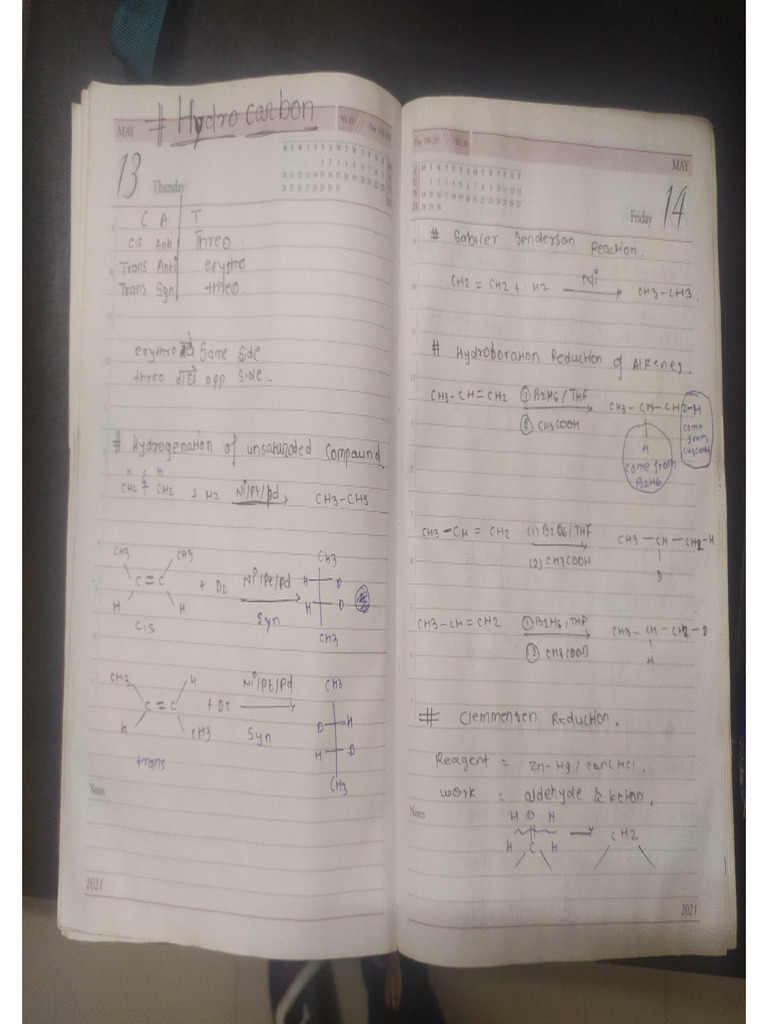 # Hydrocarbon
MAY
13
Thursday
M T W T F S S M T W T F S S
C A T
Cis Anti Threo.
Trans Anti erythro
Trans Syn threo.
erythro Same side
threo opp side.
# Hydrogenation of unsaturated Compound.
H H
CH2 = CH2 + H2 Ni/Pt/Pd CH3-CH3
CH3 CH3 CH3
C=C + D2 Ni/Pt/Pd H D
H H Syn H D
Cis CH3
CH3 H Ni/Pt/Pd CH3
C=C + D2 D H
H CH3 Syn H D
trans CH3
Notes
2021
MAY
Friday 14
# Sabtier Senderson Reaction.
CH2 = CH2 + H2 Ni CH3-CH3.
# Hydroboration Reduction of Alkenes.
CH3-CH=CH2 ① B2H6/THF CH3-CH-CH2-H
② CH3COOH
H
come from B2H6
come from CH3COOH
CH3-CH = CH2 (1) B2D6/THF CH3-CH-CH2-H
(2) CH3COOH D
CH3-CH=CH2 ① B2H6/THF CH3-CH-CH2-D
② CH3COOD H
# Clemmensen Reduction.
Reagent = Zn-Hg/con(HCl.
work = aldehyde & keton,
Notes
H O H CH2
H C H
2021